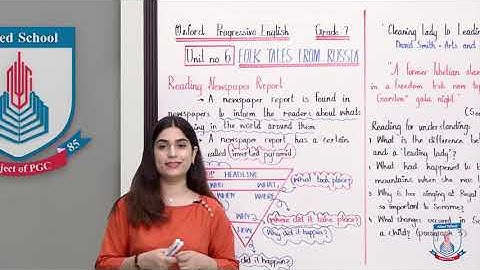 Allied School
Project of PGC
85
Oxford Progressive English Grade-7
Unit no 6 FOLK TALES FROM RUSSIA
Reading Newspaper Report
→ A newspaper report is found in
newspapers to inform the readers about whats
in the world around them
A newspaper report has a certain
called inverted pyramid
HEADLINE
WHO WHAT
What took place?
WHEN WHERE
WHY?
Where did it take place?
HOW
Why did it happen?
did it happen?
"Cleaning lady to Leading
David Smith - Arts and
"A former Tibetan
in a freedom trek now top
Garden" gala night"
Reading for understanding:
What is the difference be
and a 'leading lady'?
What had happened to
mountains when she was
Why is her singing at Royal
so important to Sonam
What changes occured in
a child? (paragraph
Allied School